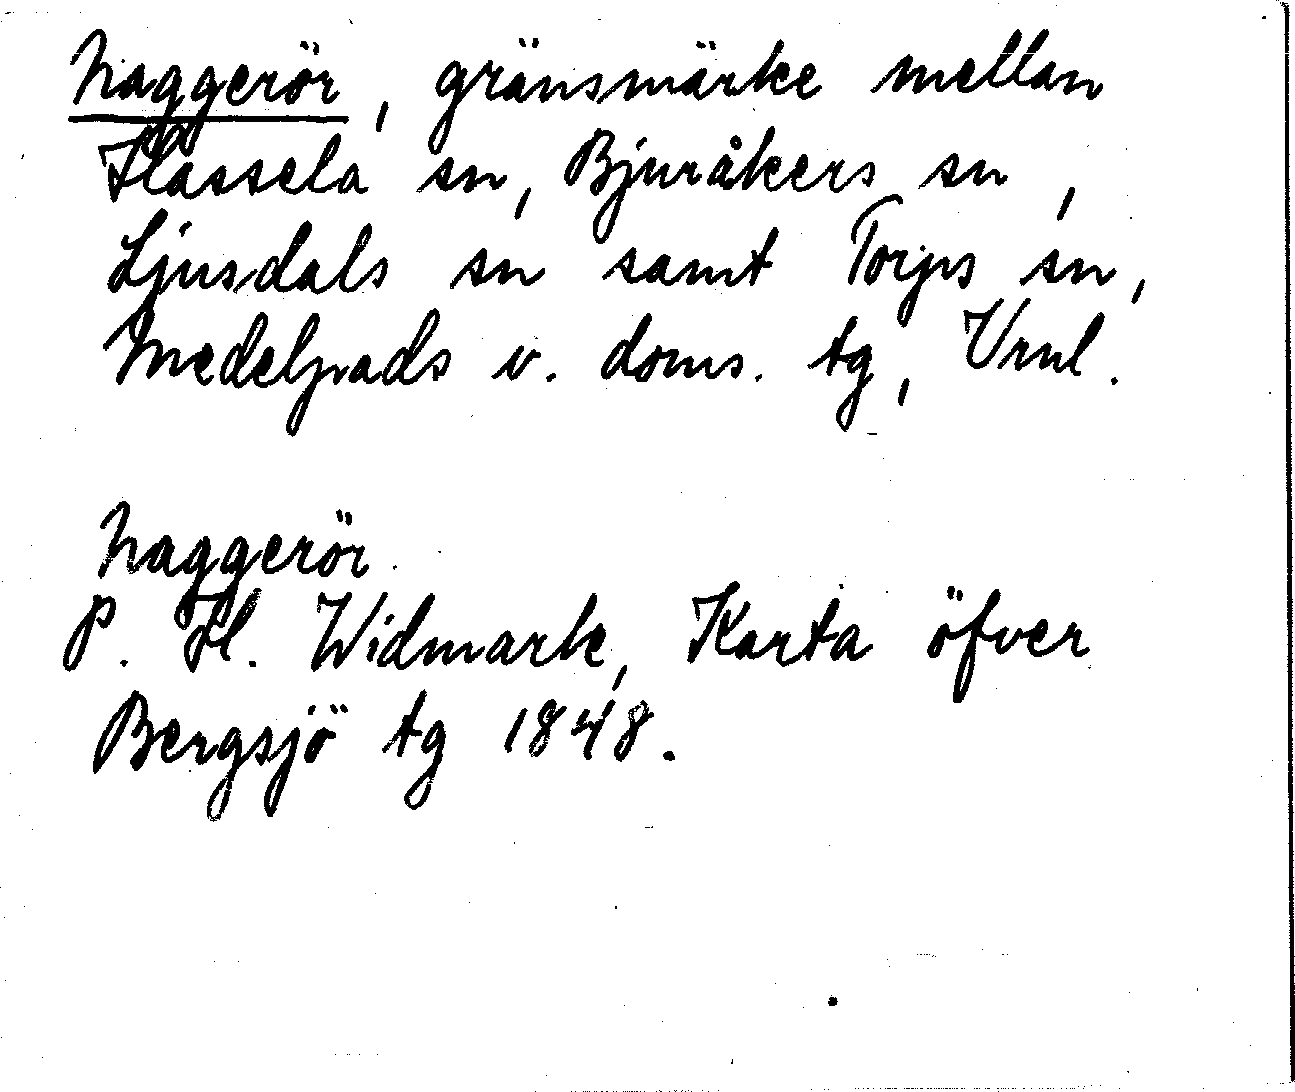 Naggerör, gränsmärke mellan
Hassela sn, Bjuråkers sn,
Ljusdals sn samt Torps sn,
Medelpads v. doms. tg, Vrnl.

Naggerör.
P. H. Widmark, Karta öfver
Bergsjö tg 1848.